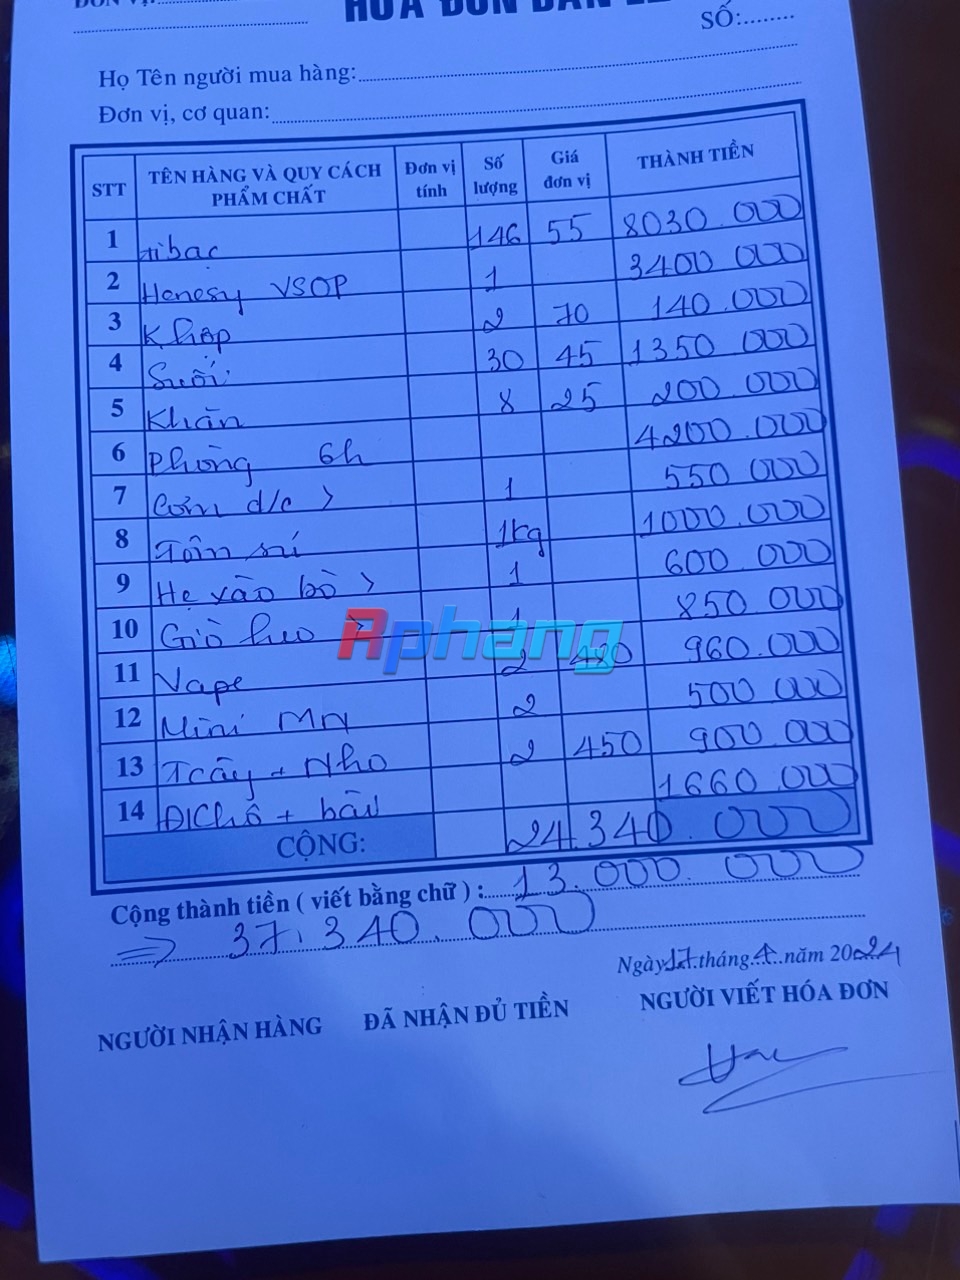 ĐƠN VỊ:
HÓA ĐƠN BÁN LẺ
SỐ:........
Họ Tên người mua hàng:
Đơn vị, cơ quan:
STT TÊN HÀNG VÀ QUY CÁCH PHẨM CHẤT Đơn vị tính Số lượng Giá đơn vị THÀNH TIỀN
1 tibac 146 55 8030.000
2 Henesy VSOP 1 3400 000
3 Khập 2 70 140.000
4 Suối 30 45 1350.000
5 Khăn 8 25 200.000
6 Phòng 6h 4200.000
7 Cơm d/c > 1 550 000
8 Tôm sú 1kg 1000.000
9 Hẹ xào bò > 1 600 000
10 Giò heo > 1 850 000
11 Vape 2 480 960.000
12 Mini MN 2 500 000
13 Tcây + Nho 2 450 900.000
14 ĐIChỗ + bàn 1660.000
CỘNG: 24.340.000
Cộng thành tiền ( viết bằng chữ ) : 13.000.000
=> 37.340.000
Ngày 17 tháng 4 năm 2024
NGƯỜI NHẬN HÀNG ĐÃ NHẬN ĐỦ TIỀN NGƯỜI VIẾT HÓA ĐƠN
Rphang